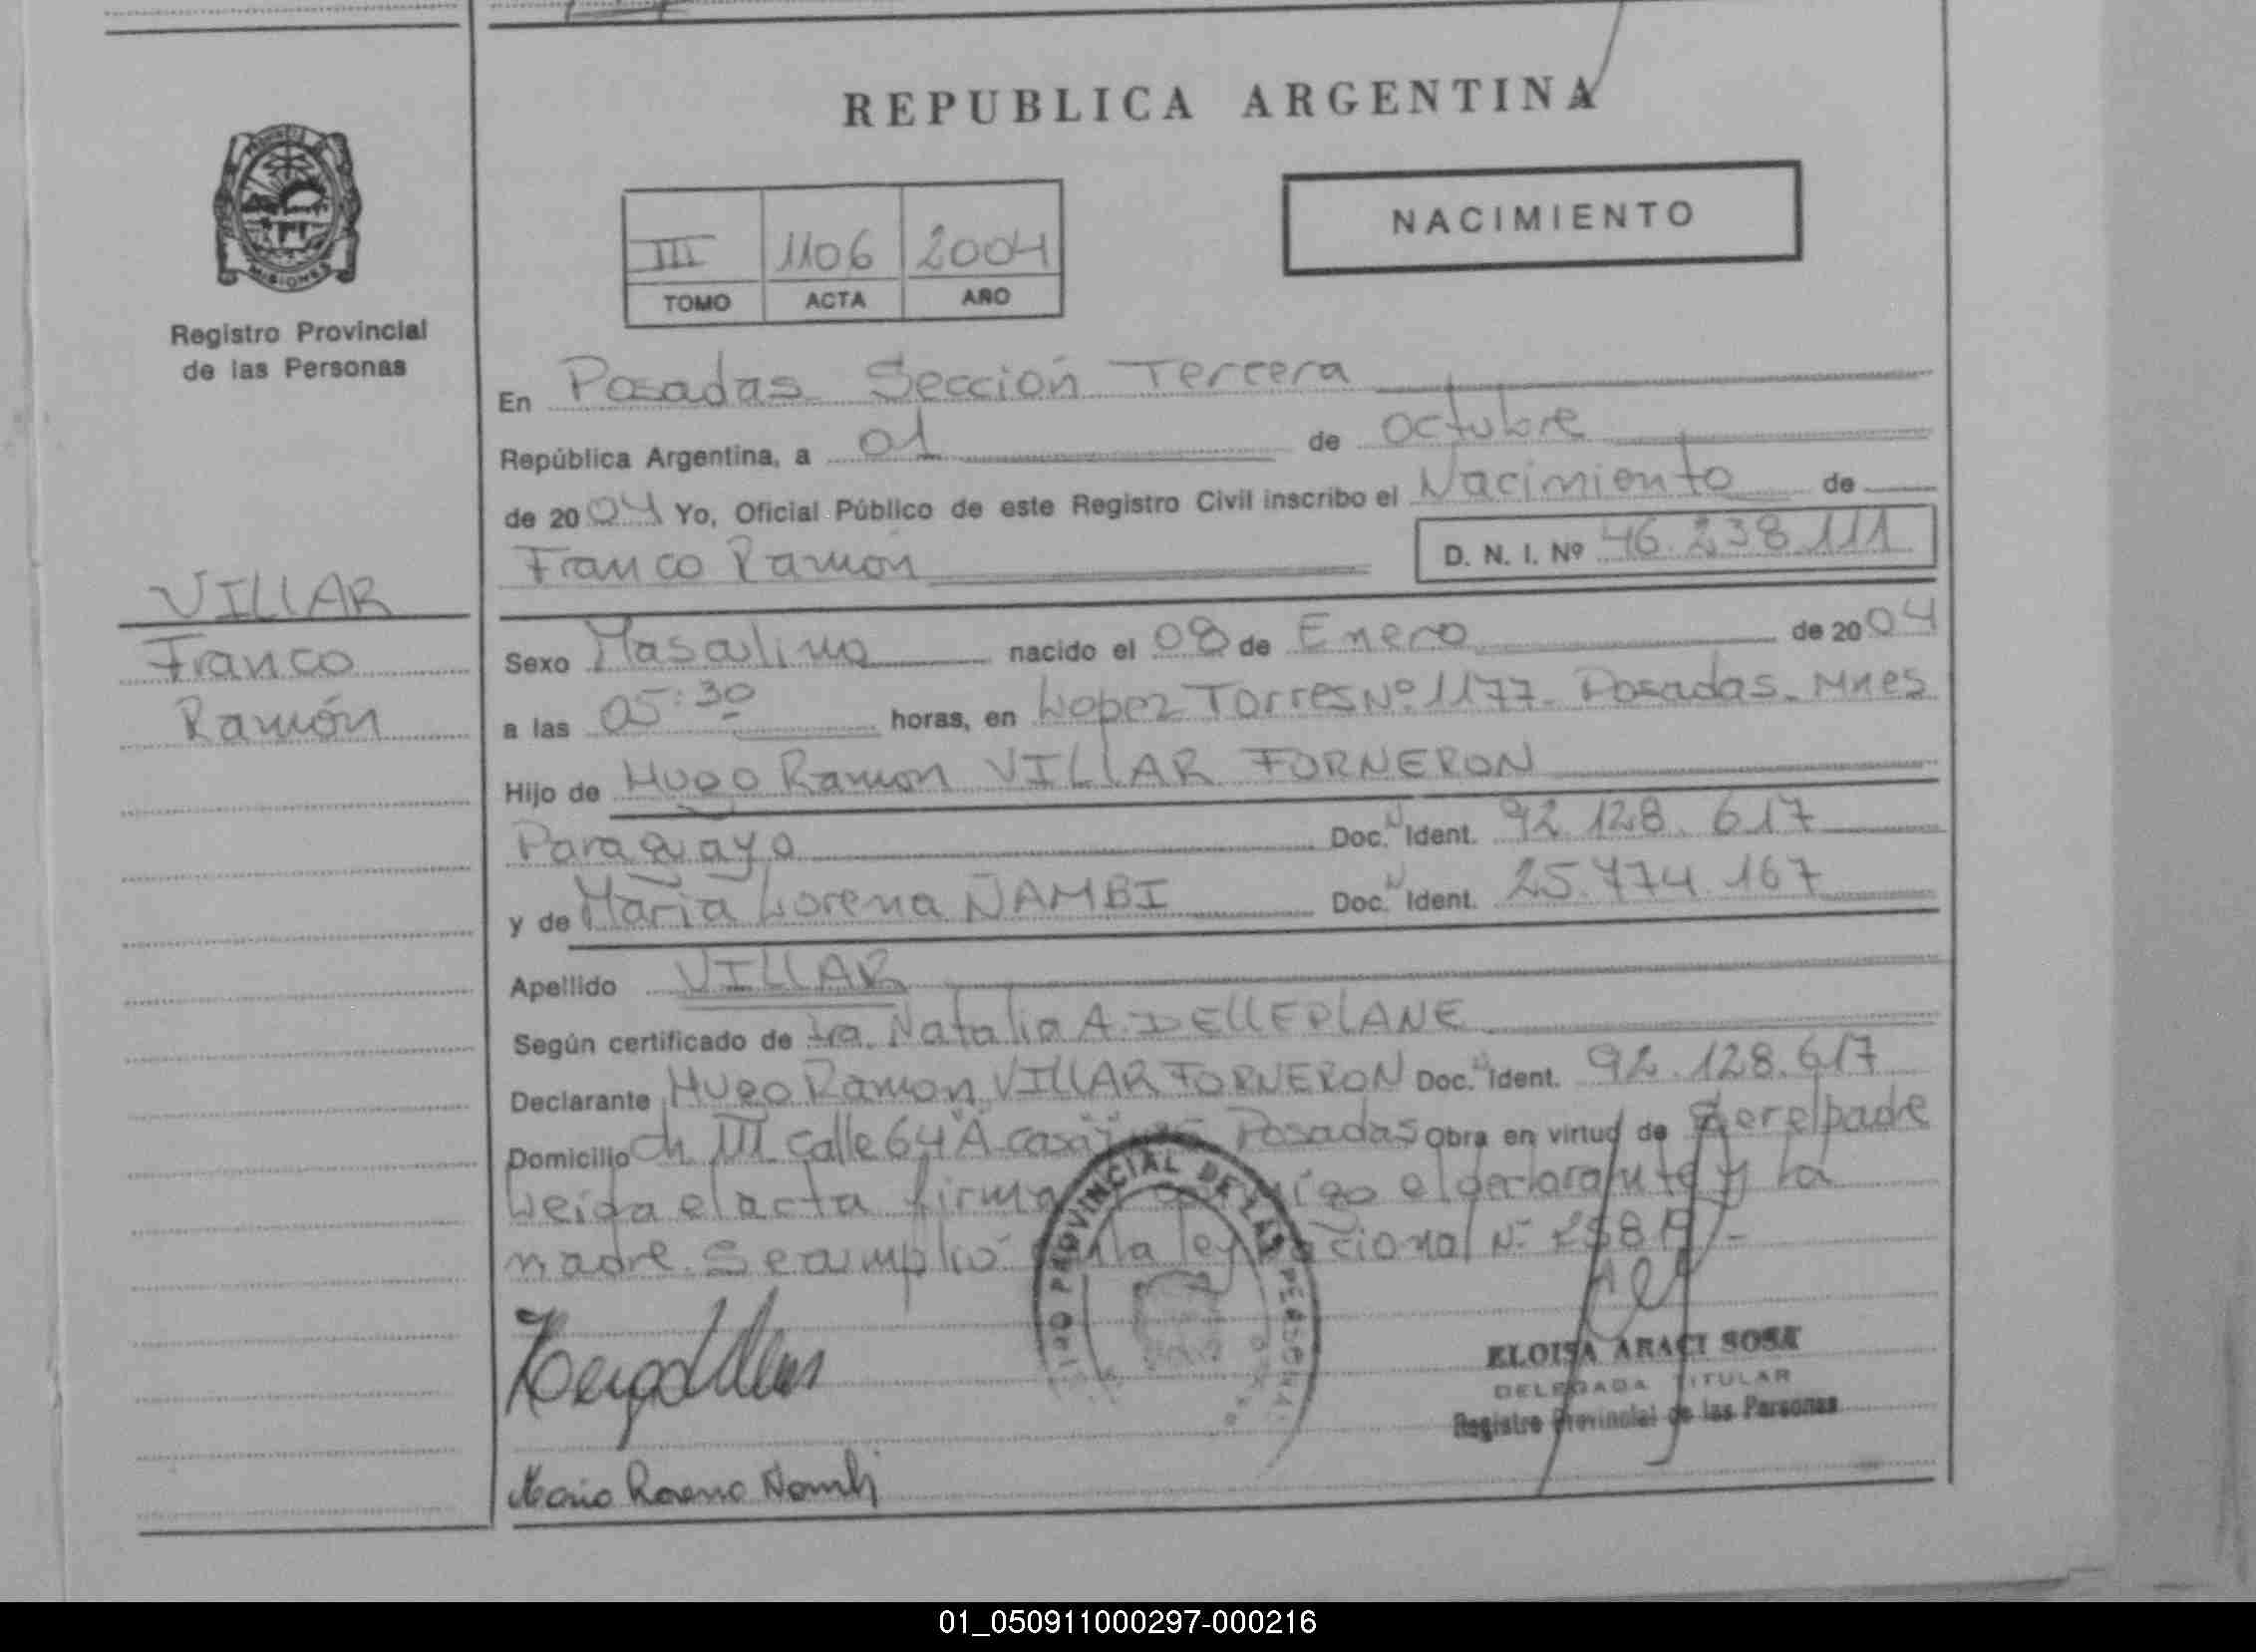 REPUBLICA ARGENTINA
NACIMIENTO
III 1106 2004
TOMO ACTA AÑO
MISIONES
Registro Provincial
de las Personas
VILLAR
Franco
Ramón
En Posadas Sección Tercera
República Argentina, a 01 de Octubre
de 2004 Yo, Oficial Público de este Registro Civil inscribo el Nacimiento de
Franco Ramón D. N. I. Nº 46.238.111
Sexo Masculino nacido el 08 de Enero de 2004
a las 05:30 horas, en Lopez Torres Nº 1177- Posadas- Mnes
Hijo de Hugo Ramon VILLAR FORNERON
Paraguayo Doc. N Ident. 92.128.617
y de Maria Lorena ÑAMBI Doc. N Ident. 25.774.167
Apellido VILLAR
Según certificado de Natalia A. DELLEPIANE
Declarante Hugo Ramon VILLAR FORNERON Doc. N Ident. 92.128.617
Domicilio Ch III Calle 64 "A" casa Posadas Obra en virtud de ser el padre
Leida el acta firma conmigo el declarante y la
madre. Se cumplió con la ley nacional Nº
PROVINCIAL DE LAS PERSONAS
ELOISA ARACI SOSA
DELEGADA TITULAR
Registro Provincial de las Personas
Maria Lorena Ñambi
01_050911000297-000216